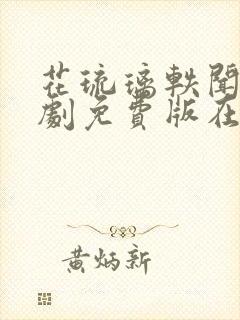 花琉璃軼聞
劇免費版在
黃炳新